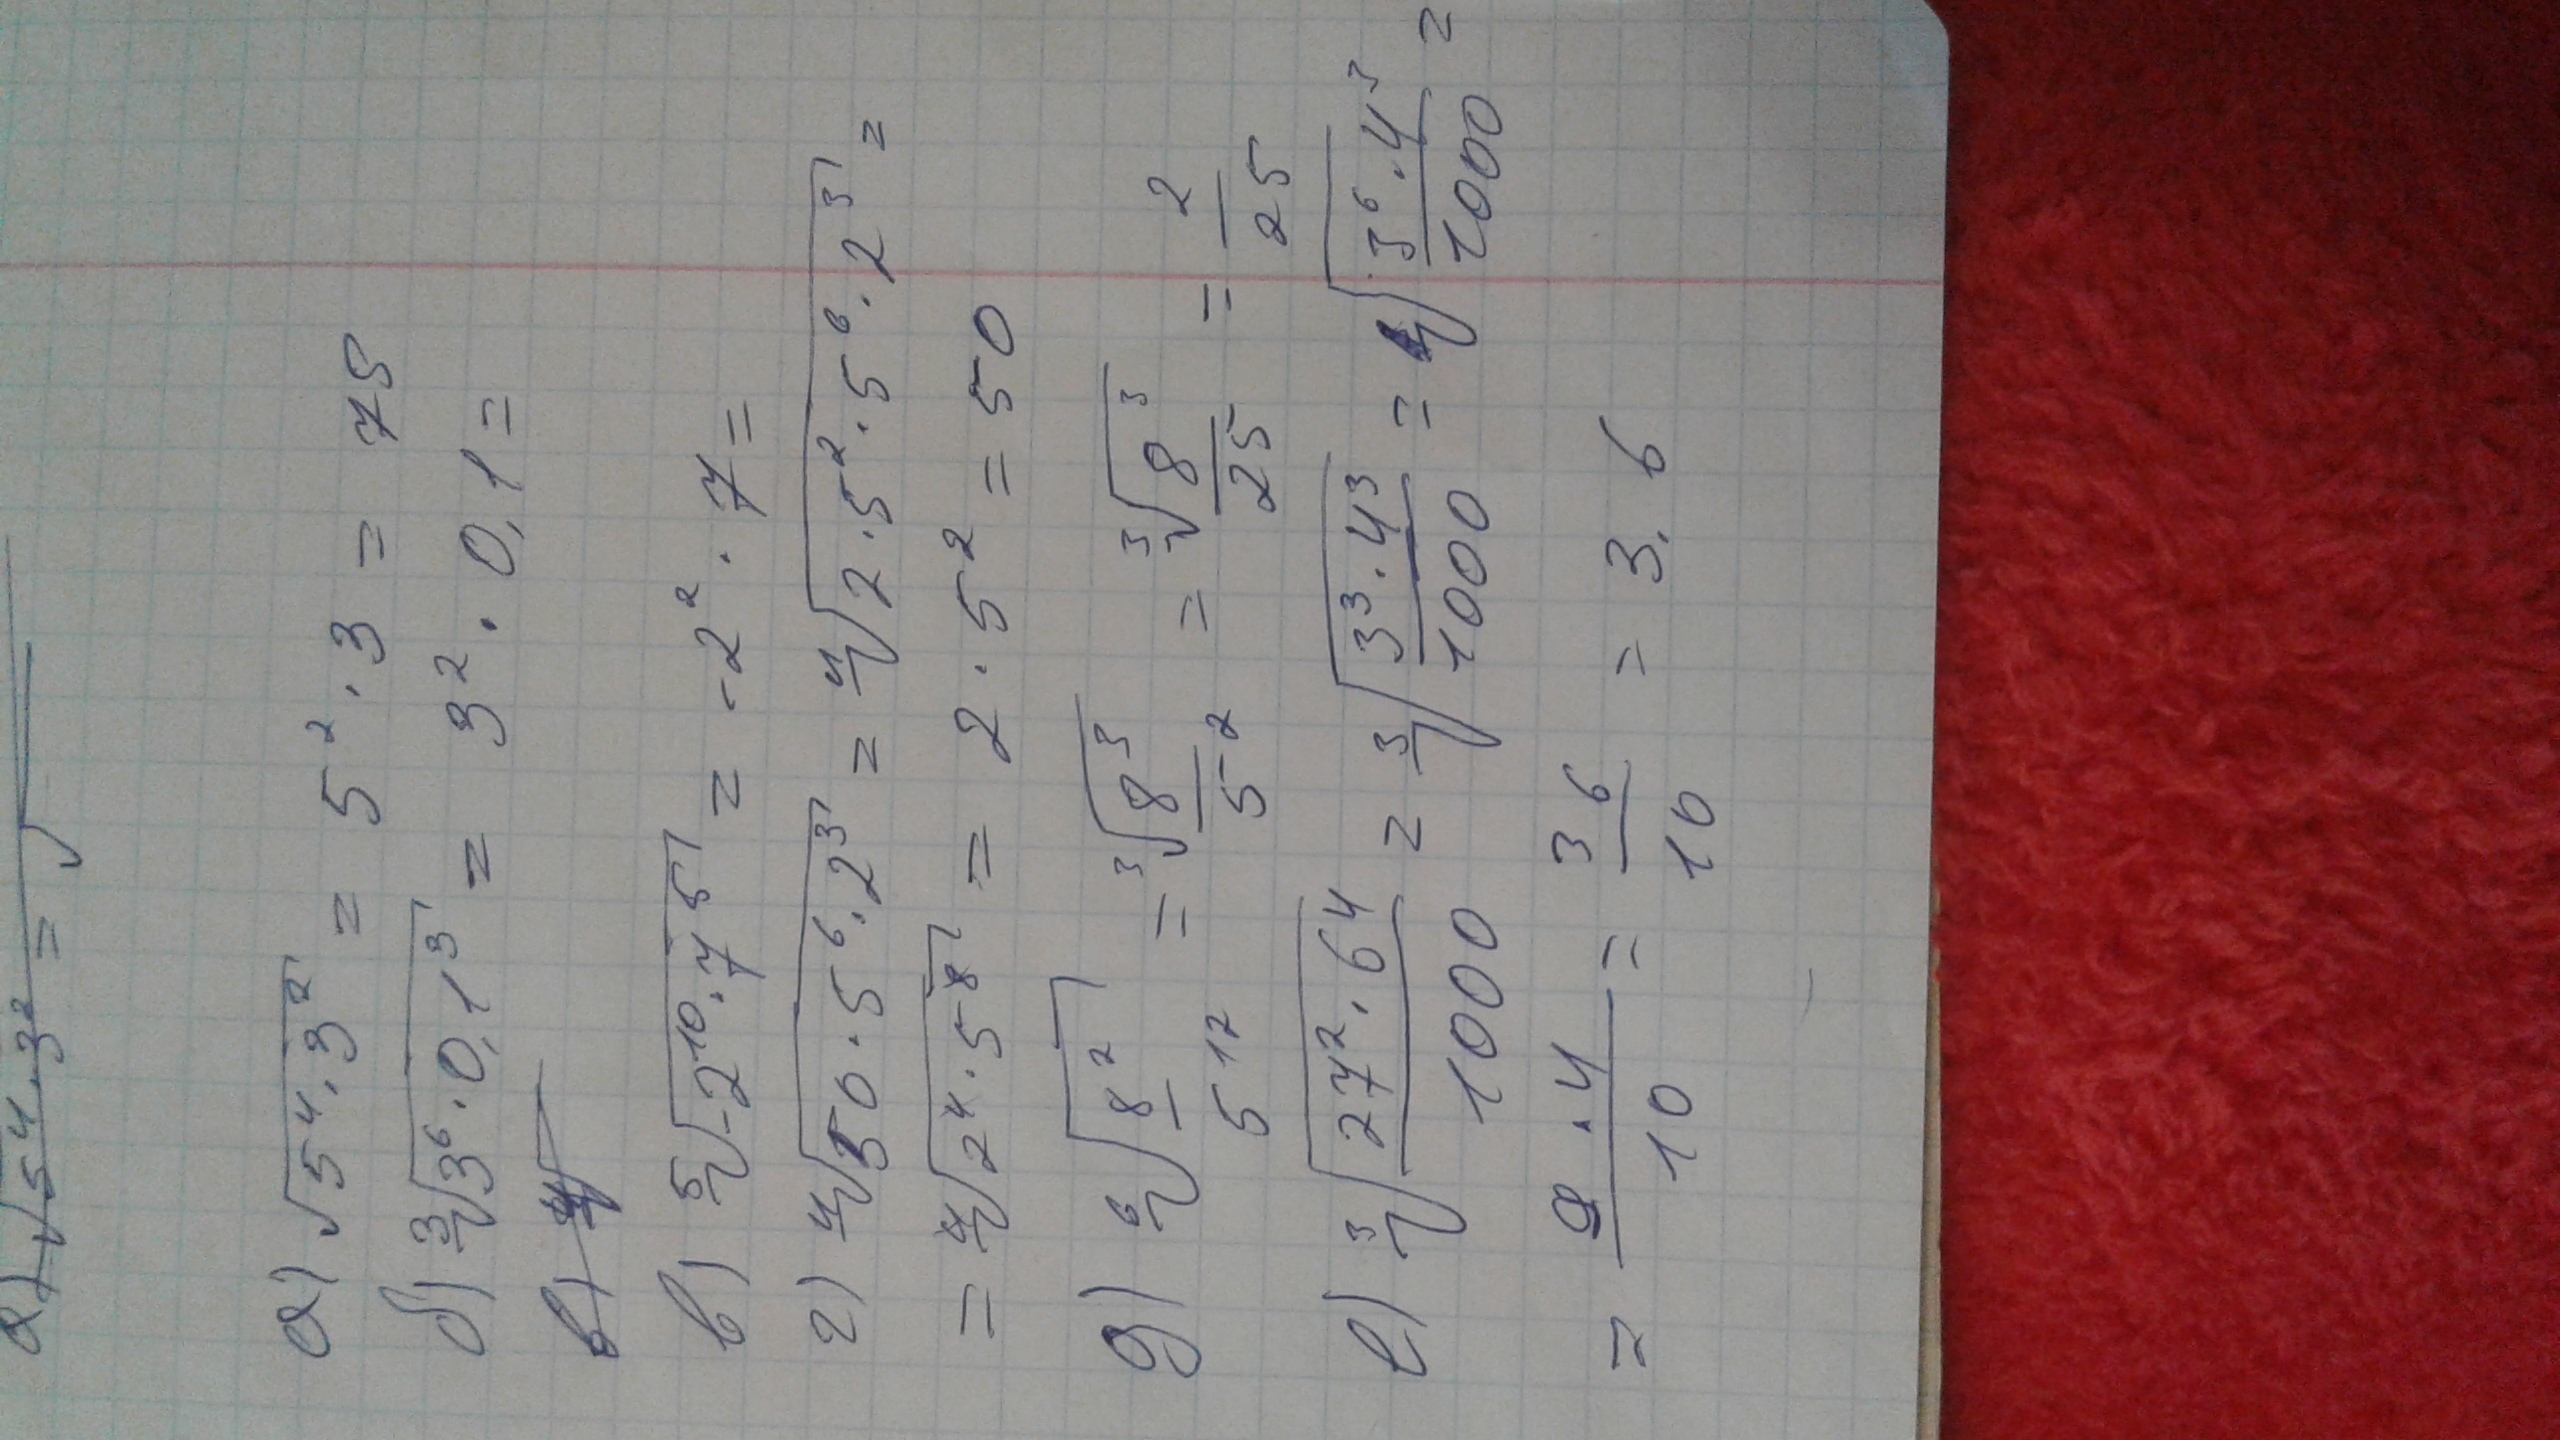 а) √5⁴·3² = √
а) √5⁴·3² = 5²·3 = 75
б) ³√3⁶·0,1³ = 3²·0,1=
в) ⁴√
в) ⁵√-2¹⁰·7⁵ = -2²·7=
г) ⁴√50·5⁶·2³ = ⁴√2·5²·5⁶·2³ =
= ⁴√2⁴·5⁸ = 2·5² = 50
д) ⁶√8²/5¹² = ³√8³/5² = ³√8³/25 = 2/25
е) ³√27²·64/1000 = ³√3³·4³/1000 = √3⁶·4³/1000 =
= 9·4/10 = 36/10 = 3,6